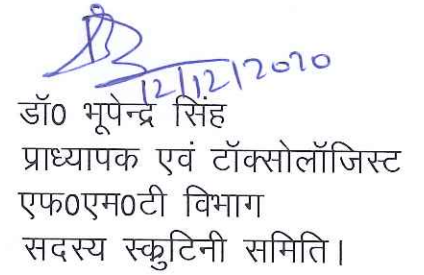 12/12/2020
डॉ0 भूपेन्द्र सिंह
प्राध्यापक एवं टॉक्सोलॉजिस्ट
एफ0एम0टी विभाग
सदस्य स्कुटिनी समिति।